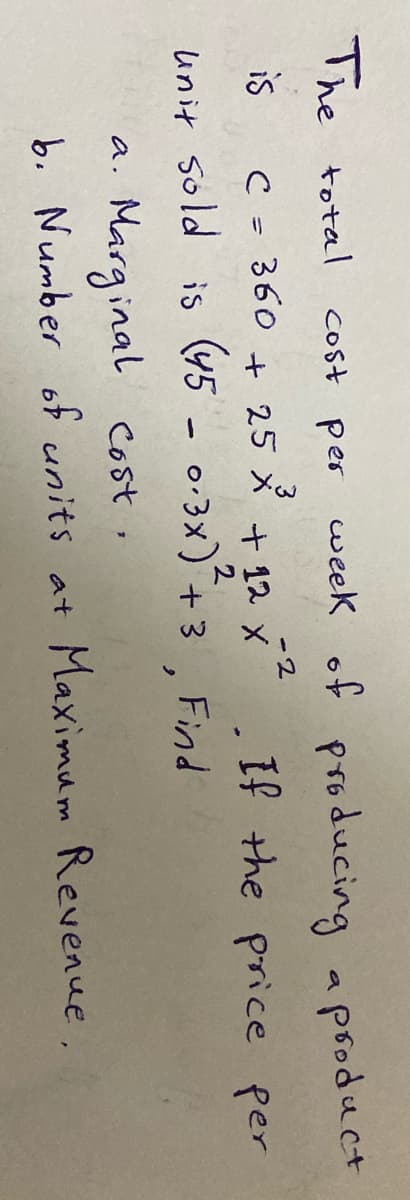 The total cost per week of producing a product
is C = 360 + 25 x³ + 12 x⁻² . If the price per
unit sold is (45 - 0.3x)² + 3 , Find
a. Marginal Cost.
b. Number of units at Maximum Revenue.